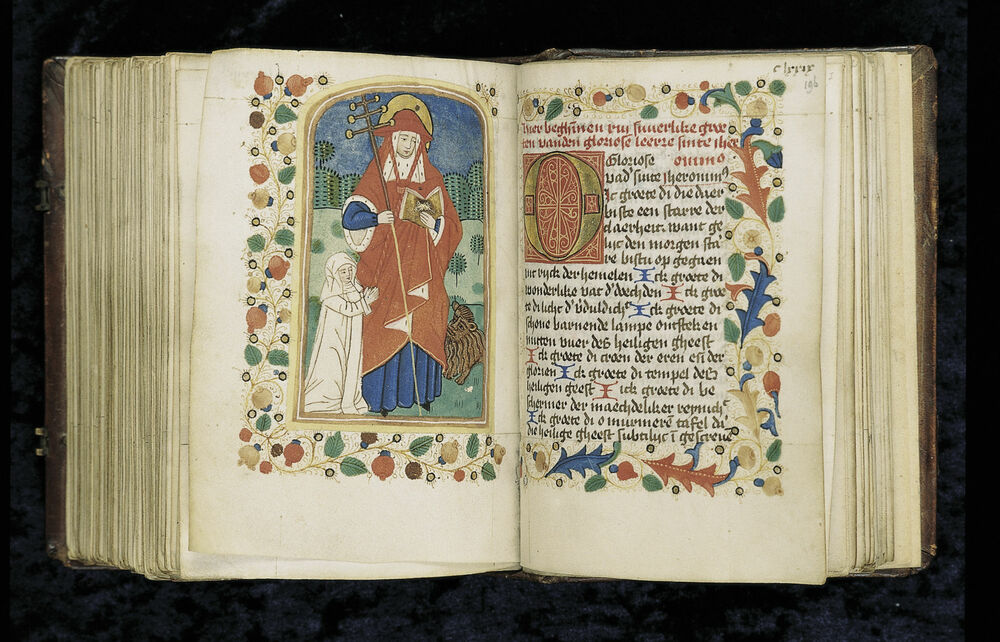 clxxix
196
hier beghinnen xvi suuerlike groe
ten vanden gloriose leerre sinte iher
O Gloriose onimo
vad' sinte iheronim9
Ic groete di die daer
biste een starre der
claerheit. want ge
lijc den morgen sta
re bistu op gegaen
int rijck der hemelen Ick groete di
wonderlike vat d' doechden Ick groe
te di licht d'
schone barnende lampe ontsteken
mitten vuer des heiligen gheest
Ick groete di croen der eren en der
glorien Ick groete di tempel des
heiligen geest Ick groete di be
schermer der maechdeliker reynich'
Ick groete di o murmere tafel di
die heilige gheest subtalyc i gescreue